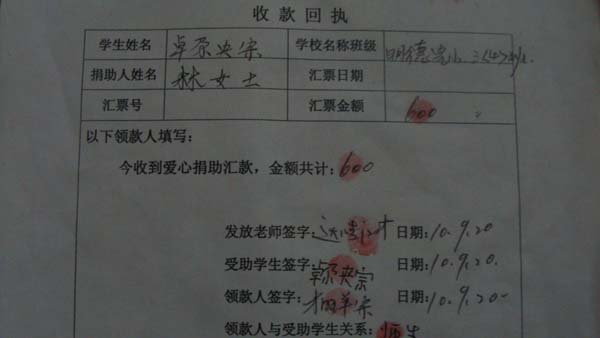 收款回执
学生姓名 卓尕央宗 学校名称班级 明德
捐助人姓名 林女士 汇票日期
汇票号 汇票金额 600
以下领款人填写:
今收到爱心捐助汇款,金额共计:600
发放老师签字: 日期:10.9.20
受助学生签字:卓尕央宗 日期:10.9.20.
领款人签字: 日期:10.9.20
领款人与受助学生关系:师生